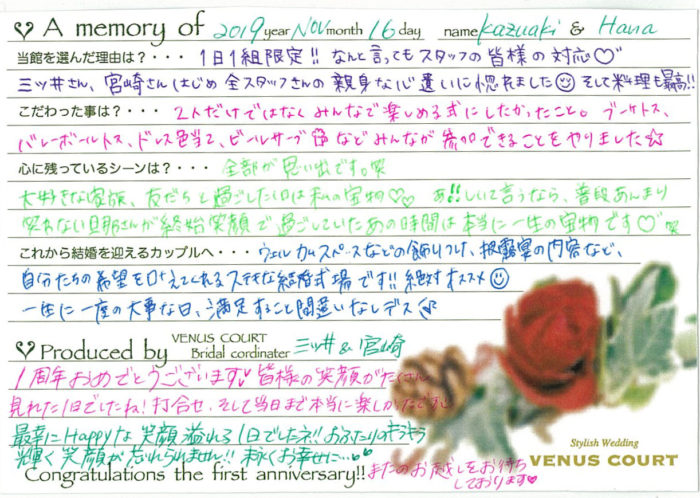 A memory of 2019 year Nov month 16 day name Kazuaki & Hana
当館を選んだ理由は？・・・ 1日1組限定!! なんと言ってもスタッフの皆様の対応♡
三ツ井さん、宮崎さんはじめ全スタッフさんの親身な心遣いに惚れました☺ そして料理も最高!!
こだわった事は？・・・ 2人だけではなくみんなで楽しめる式にしたかったこと。ブーケトス、
バレーボールトス、ドレス色当て、ビールサーブ など みんなが参加できることをやりました☆
心に残っているシーンは？・・・ 全部が思い出です。笑
大好きな家族、友だちと過ごした1日は私の宝物♡♡ あ!!しいて言うなら、普段あんまり
笑わない旦那さんが終始笑顔で過ごしていたあの時間は本当に一生の宝物です♡笑
これから結婚を迎えるカップルへ・・・ ウェルカムスペースなどの飾りつけ、披露宴の内容など、
自分たちの希望を叶えてくれるステキな結婚式場です!! 絶対オススメ☺
一生に一度の大事な日、満足すること間違いなしデス♪
Produced by VENUS COURT Bridal cordinater 三ツ井 & 宮崎
1周年おめでとうございます♥ 皆様の笑顔がたくさん
見れた1日でしたね! 打合せ、そして当日まで本当に楽しかったです
最幸にHappyな笑顔溢れる1日でしたネ!! おふたりのキラキラ
輝く笑顔が忘れられません!! 末永くお幸せに…♥♥
Congratulations the first anniversary!! またのお越しをお待ち
しております♥
Stylish Wedding
VENUS COURT